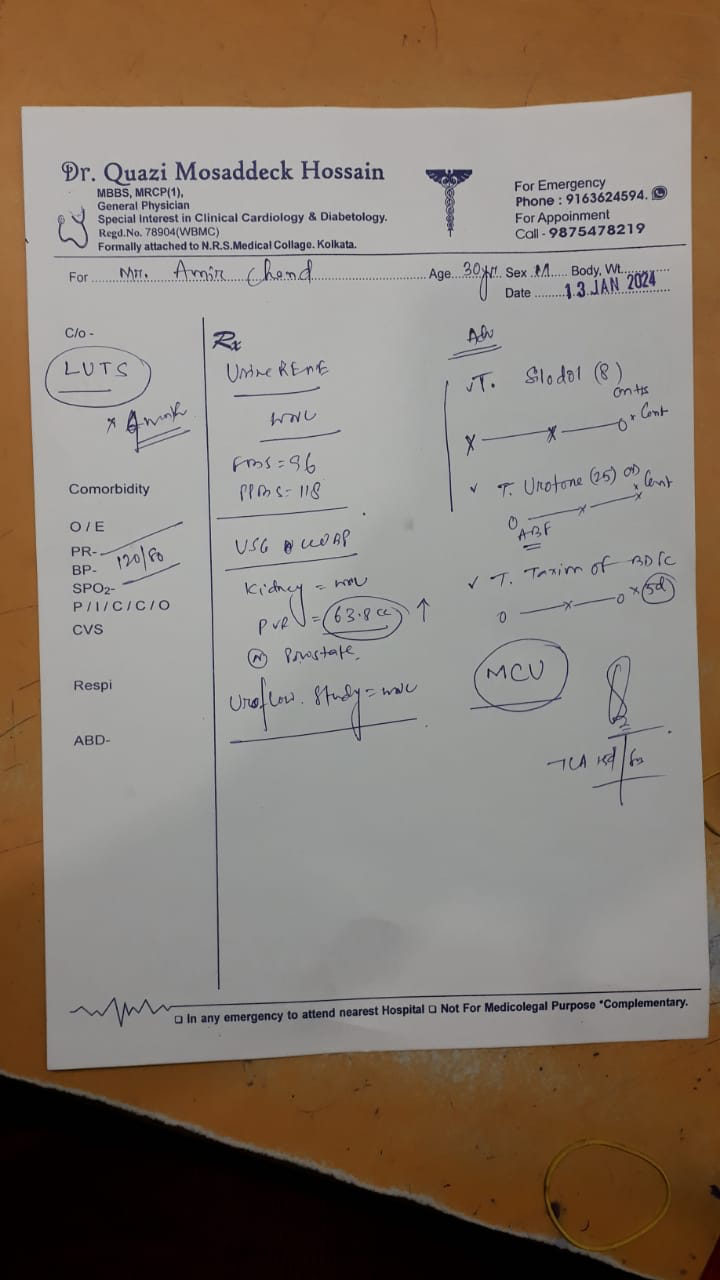 Dr. Quazi Mosaddeck Hossain
MBBS, MRCP(1),
General Physician
Special Interest in Clinical Cardiology & Diabetology.
Regd.No. 78904(WBMC)
Formally attached to N.R.S.Medical Collage. Kolkata.
For Emergency
Phone : 9163624594.
For Appoinment
Call - 9875478219
For Mr. Amir Chand Age 30yr. Sex M Body, Wt.
Date 13 JAN 2024
C/o -
LUTS
Comorbidity
O/E
PR-
BP- 120/80
SPO2-
P/I/C/C/O
CVS
Respi
ABD-
Rx
Urine REME
WNL
FBS = 96
PPBS = 118
USG KUBP
Kidney = WNL
PVR = 63.8 cc ↑
(N) Prostate
Uroflow. Study = WNL
Adv
T. Silodol (8)
X X O x Cont
T. Urotone (25) OD
O x x x Cont
ABF
T. Taxim of BD PC
O x O x 5d
MCU
In any emergency to attend nearest Hospital Not For Medicolegal Purpose *Complementary.